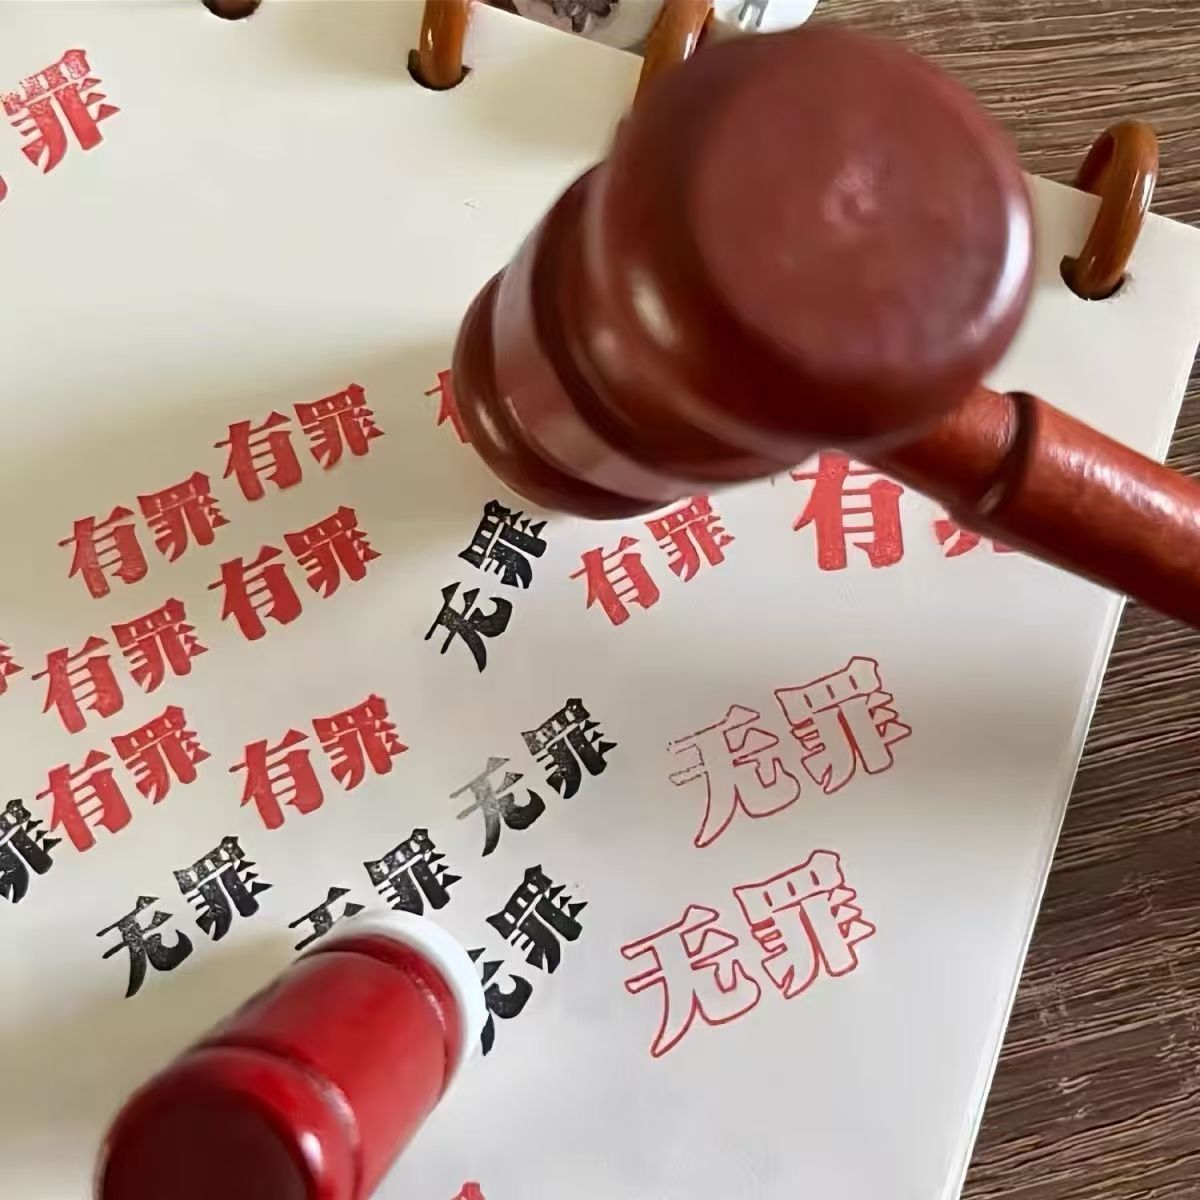 罪
有罪
有罪
有罪
有罪
有罪
有罪
有
无罪
有罪
有罪
无罪
无罪
罪
无罪
罪
无罪
无罪